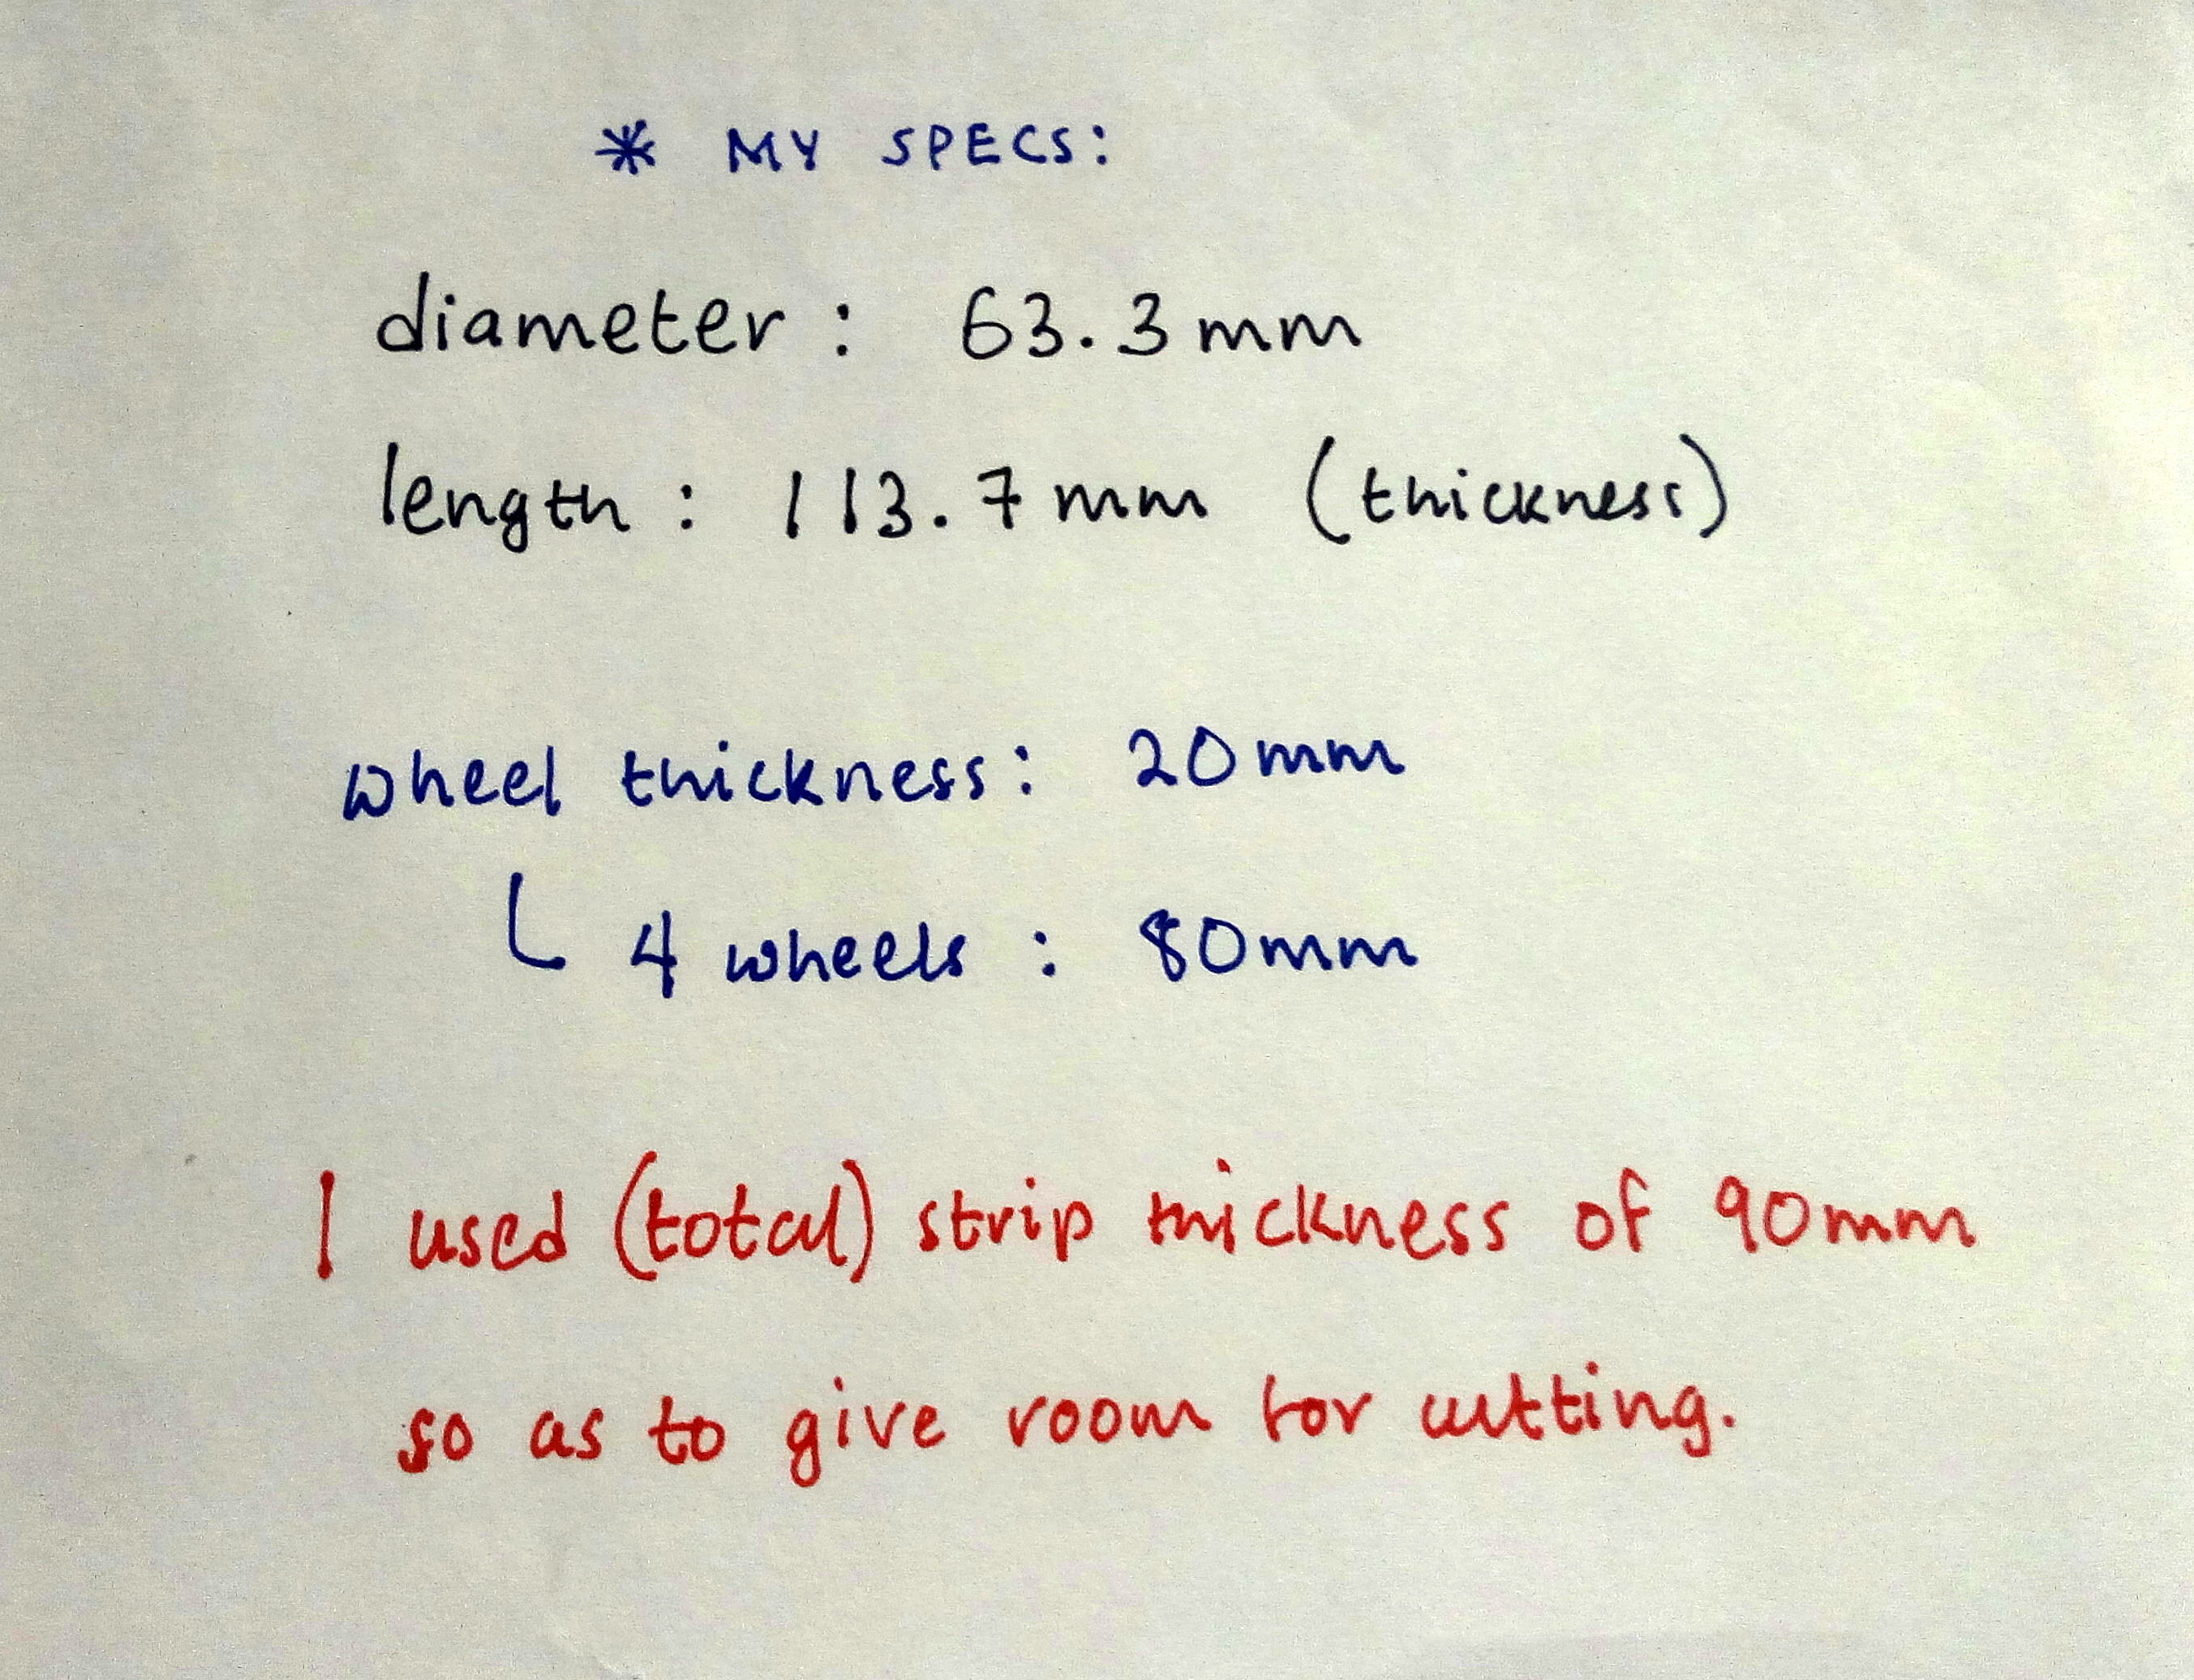 * MY SPECS:
diameter : 63.3mm
length : 113.7mm (thickness)
wheel thickness: 20mm
4 wheels : 80mm
I used (total) strip thickness of 90mm
so as to give room for cutting.